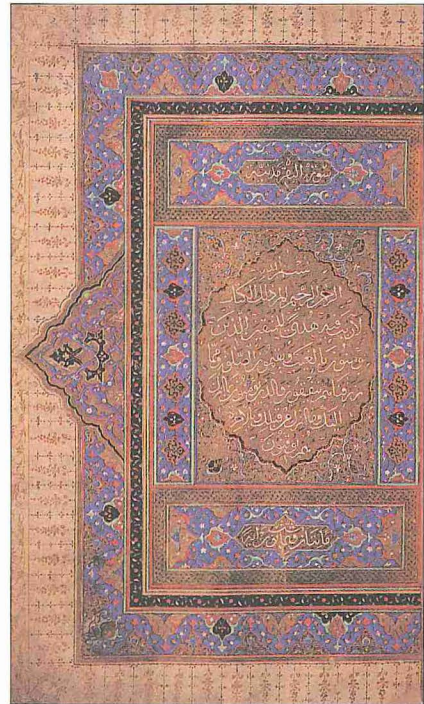 سورة البقر مدنيه
بسم الله
الرحمن الرحيم الم ذلك الكتاب
لا ريب فيه هدى للمتقين الذين
يؤمنون بالغيب ويقيمون الصلوة ومما
رزقناهم ينفقون والذين يؤمنون بما
انزل اليك وما انزل من قبلك وبالاخرة
هم يوقنون
مايتان آية